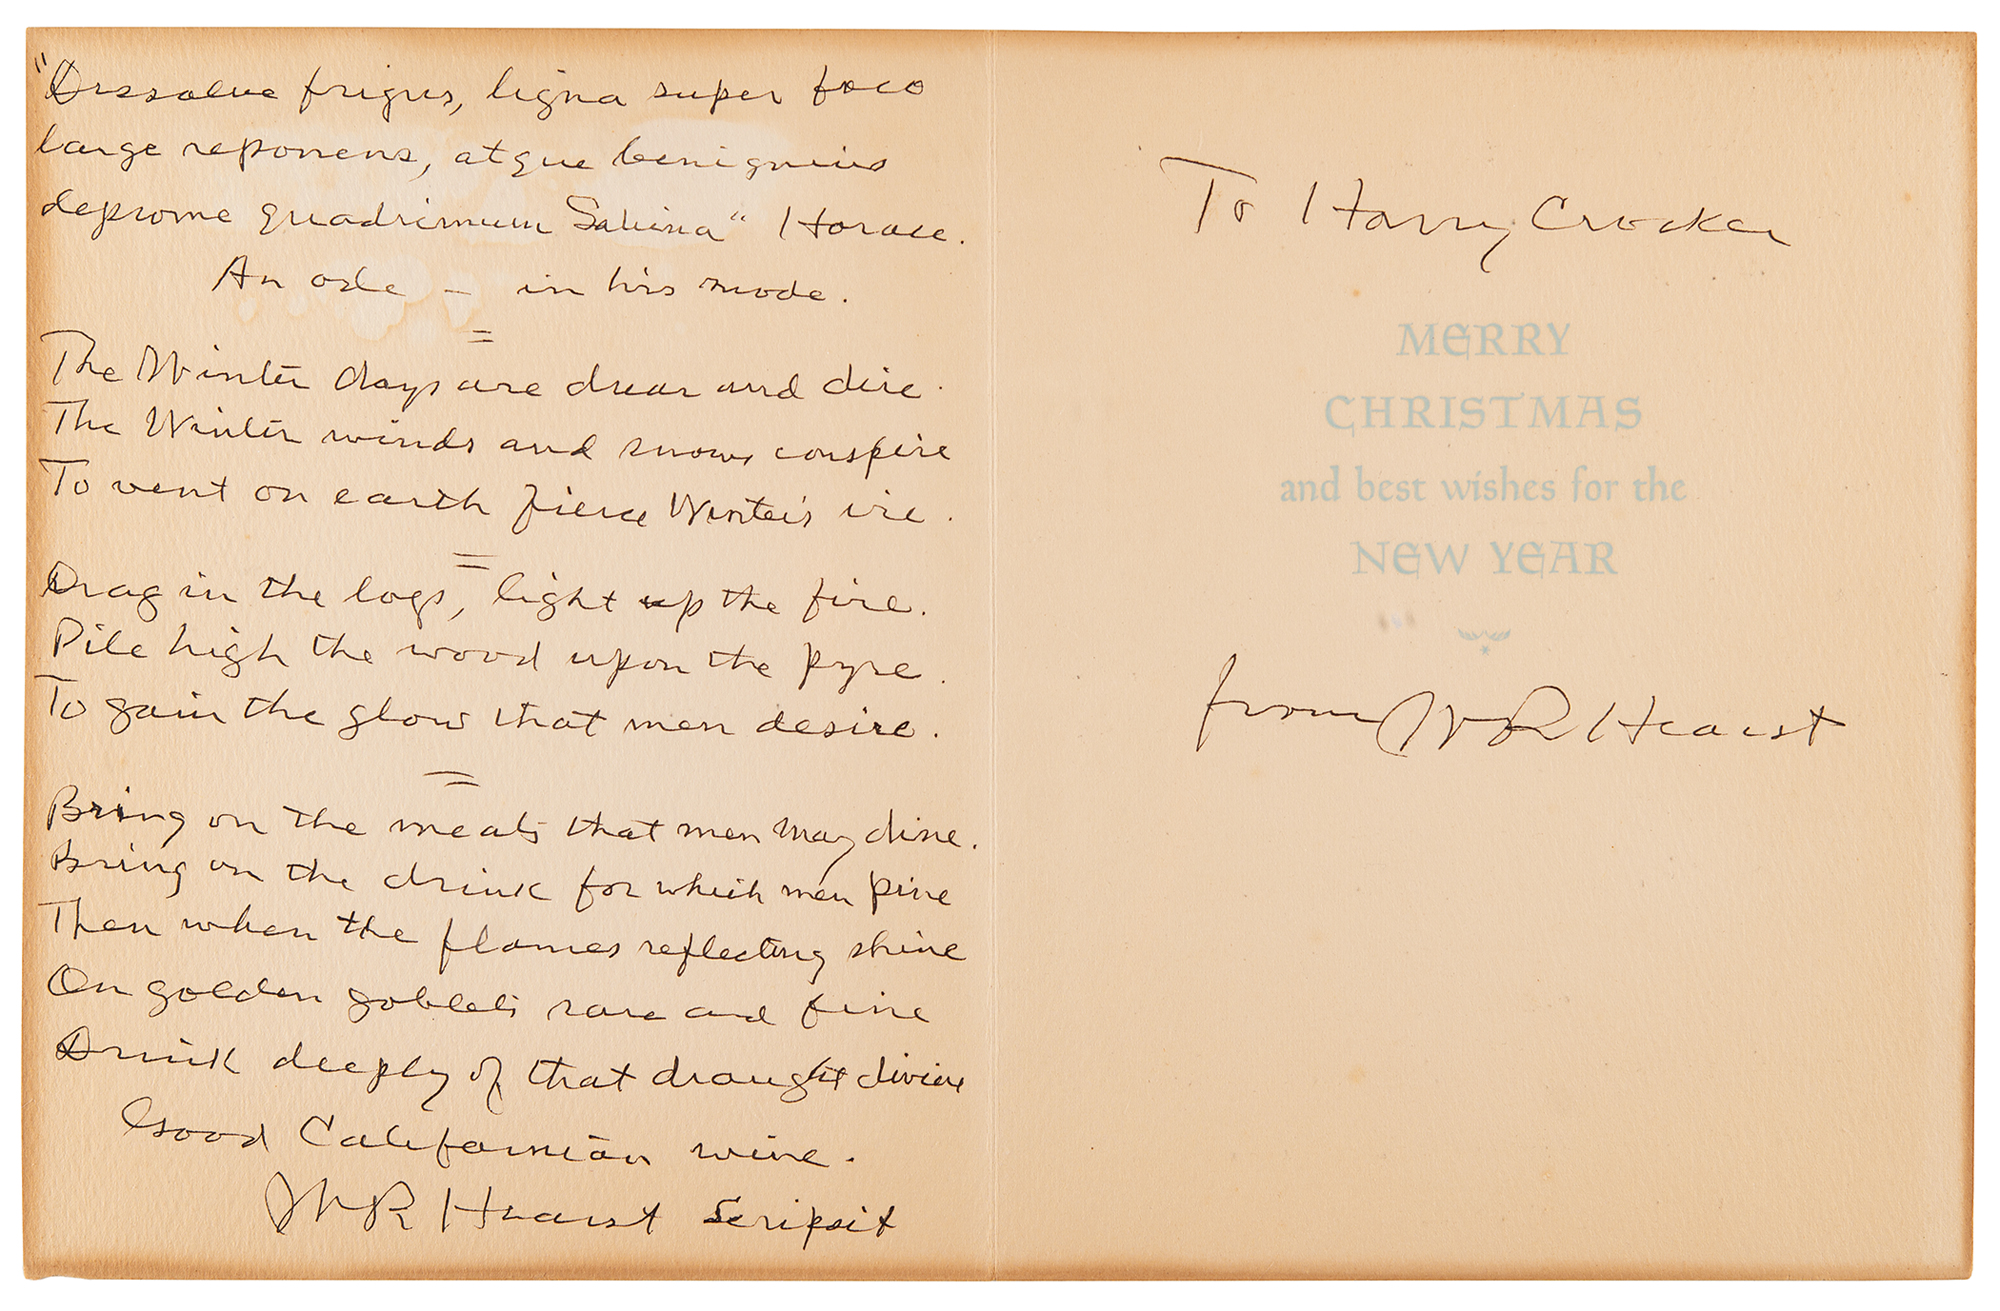 "Dissolve frigus, ligna super foco
large reponens, atque benignius
deprome quadrimum Sabina" Horace.
An ode – in his mode.
=
The Winter days are drear and dire.
The Winter winds and snows conspire
To vent on earth fierce Winter's ire.
=
Drag in the logs, light up the fire.
Pile high the wood upon the pyre.
To gain the glow that men desire.
=
Bring on the meats that men may dine.
Bring on the drink for which men pine
Then when the flames reflecting shine
On golden goblets rare and fine
Drink deeply of that draught divine
Good Californian wine.
WR Hearst Scripsit
To Harry Crocker
MERRY
CHRISTMAS
and best wishes for the
NEW YEAR
from WR Hearst